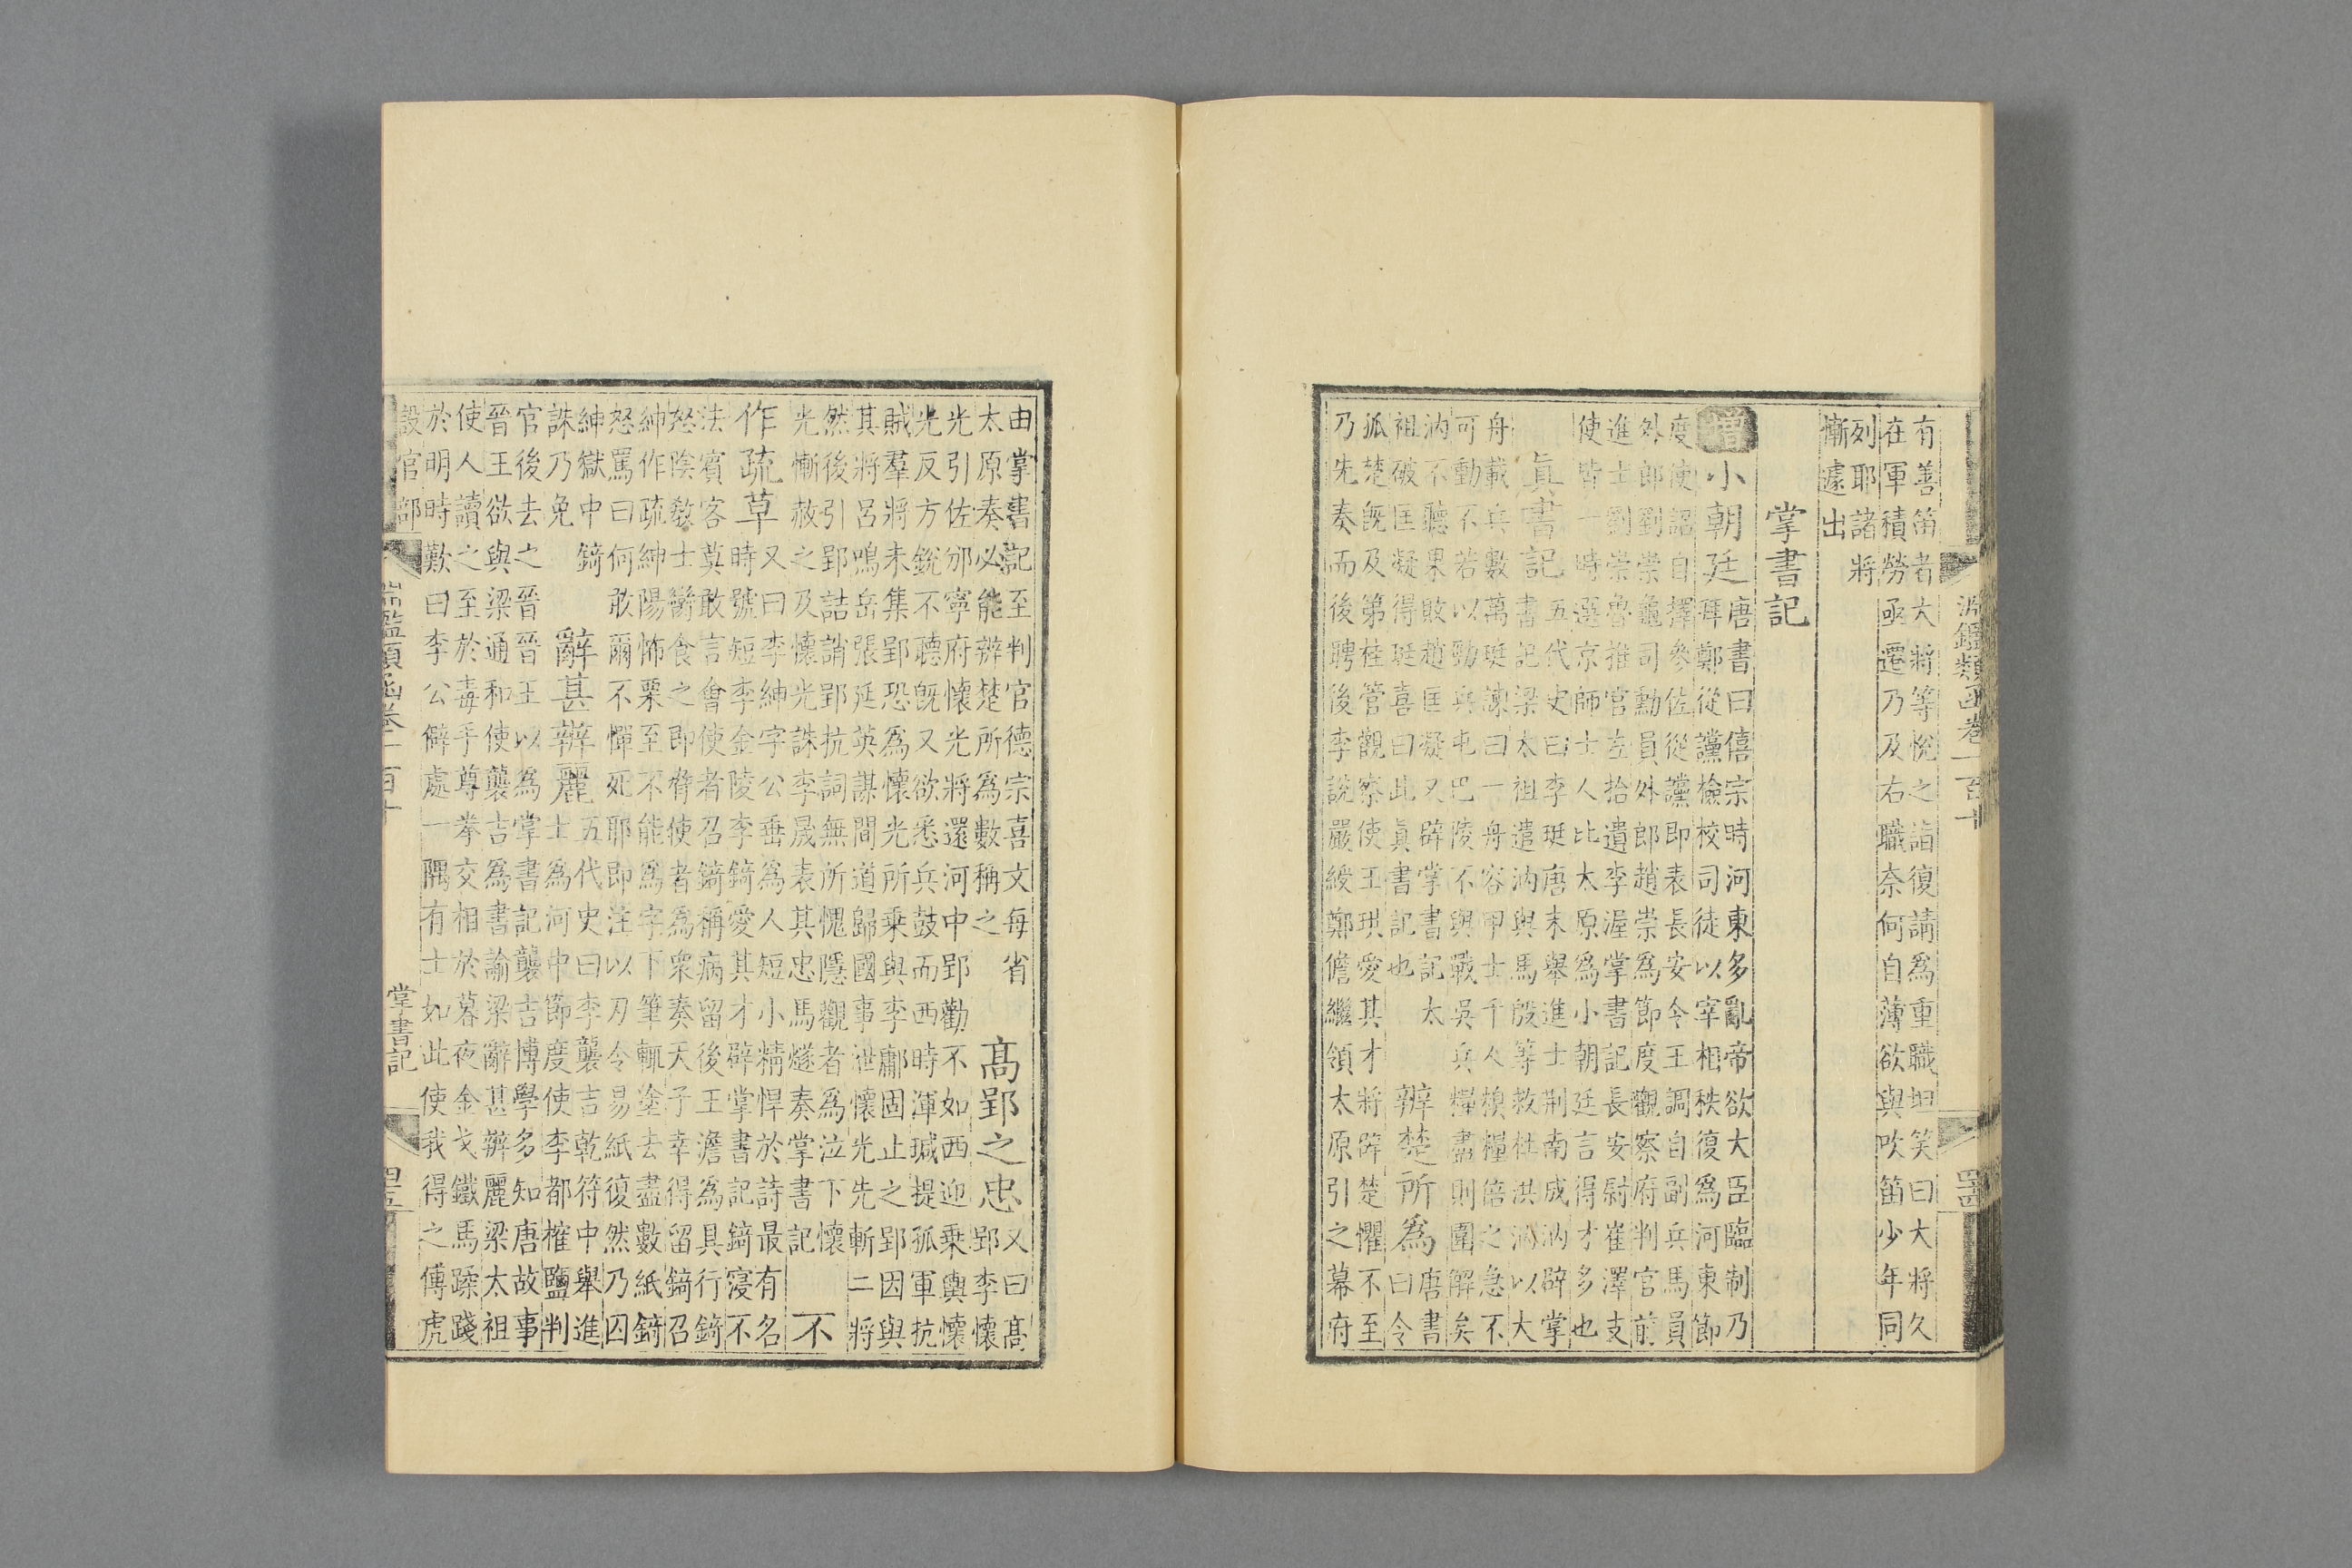 有善笛者大將等悅之詣復請爲重職坦笑曰大將久
在軍積勞亟遷乃及右職奈何自薄欲與吹笛少年同
列耶諸將
慚遽出
掌書記
增
小朝廷
唐書曰僖宗時河東多亂帝欲大臣臨制乃
拜鄭從讜檢校司徒以宰相秩復爲河東節
度使詔自擇參佐從讜即表長安令王調自副兵馬員
外郎劉崇龜司勳員外郎趙崇爲節度觀察府判官前
進士劉崇魯推官左拾遺李渥掌書記長安尉崔澤支
使皆一時選京師士人比太原爲小朝廷言得才多也
眞書記
五代史曰李珽唐末舉進士荆南成汭辟掌
書記梁太祖遣汭與馬殷等救杜洪汭以大
舟載兵數萬珽諫曰一舟容甲士千人糗糧倍之急不
可動不若以勁兵屯巴陵不與戰吳兵糧盡則圍解矣
汭不聽果敗趙匡凝又辟掌書記太
祖破匡凝得珽喜曰此眞書記也
辦楚所爲
唐書
曰令
孤楚旣及第桂管觀察使王珙愛其才將辟楚懼不至
乃先奏而後聘後李說嚴綬鄭儋繼領太原引之幕府
淵鑑類函卷一百十
四四
由掌書記至判官德宗喜文每省
太原奏必能辨楚所爲數稱之
高郢之忠
又曰高
郢李懷
光引佐邠寧府懷光將還河中郢勸不如西迎乘輿懷
光反方銳不聽旣又欲悉兵鼓而西時渾瑊提孤軍抗
賊羣將未集郢恐爲懷光所乘與李鄘固止之郢因與
其將呂鳴岳張延英謀間道歸國事泄懷光先斬二將
然後引郢詰誚郢抗詞無所愧隱觀者爲泣下懷
光慚赦之及懷光誅李晟表其忠馬燧奏掌書記
不
作疏草
又曰李紳字公垂爲人短小精悍於詩最有名
時號短李金陵李錡愛其才辟掌書記錡寖不
法賓客莫敢言會使者召錡稱病留後王澹爲具行錡
怒陰教士臠食之即脅使者爲衆奏天子幸得留錡召
紳作疏紳陽怖栗至不能爲字下筆輒塗去盡數紙錡
怒罵曰何敢爾不憚死耶即注以刃令易紙復然乃囚
紳獄中錡
誅乃免
辭甚辦麗
五代史曰李襲吉乾符中舉進
士爲河中節度使李都榷鹽判
官後去之晉晉王以爲掌書記襲吉博學多知唐故事
晉王欲與梁通和使襲吉爲書諭梁辭甚辦麗梁太祖
使人讀之至於毒手尊拳交相於暮夜金戈鐵馬蹂踐
於明時歎曰李公僻處一隅有士如此使我得之傅虎
設官部
掌書記
四五